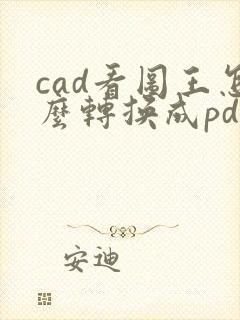 cad看图王怎
麼轉换成pd
安迪